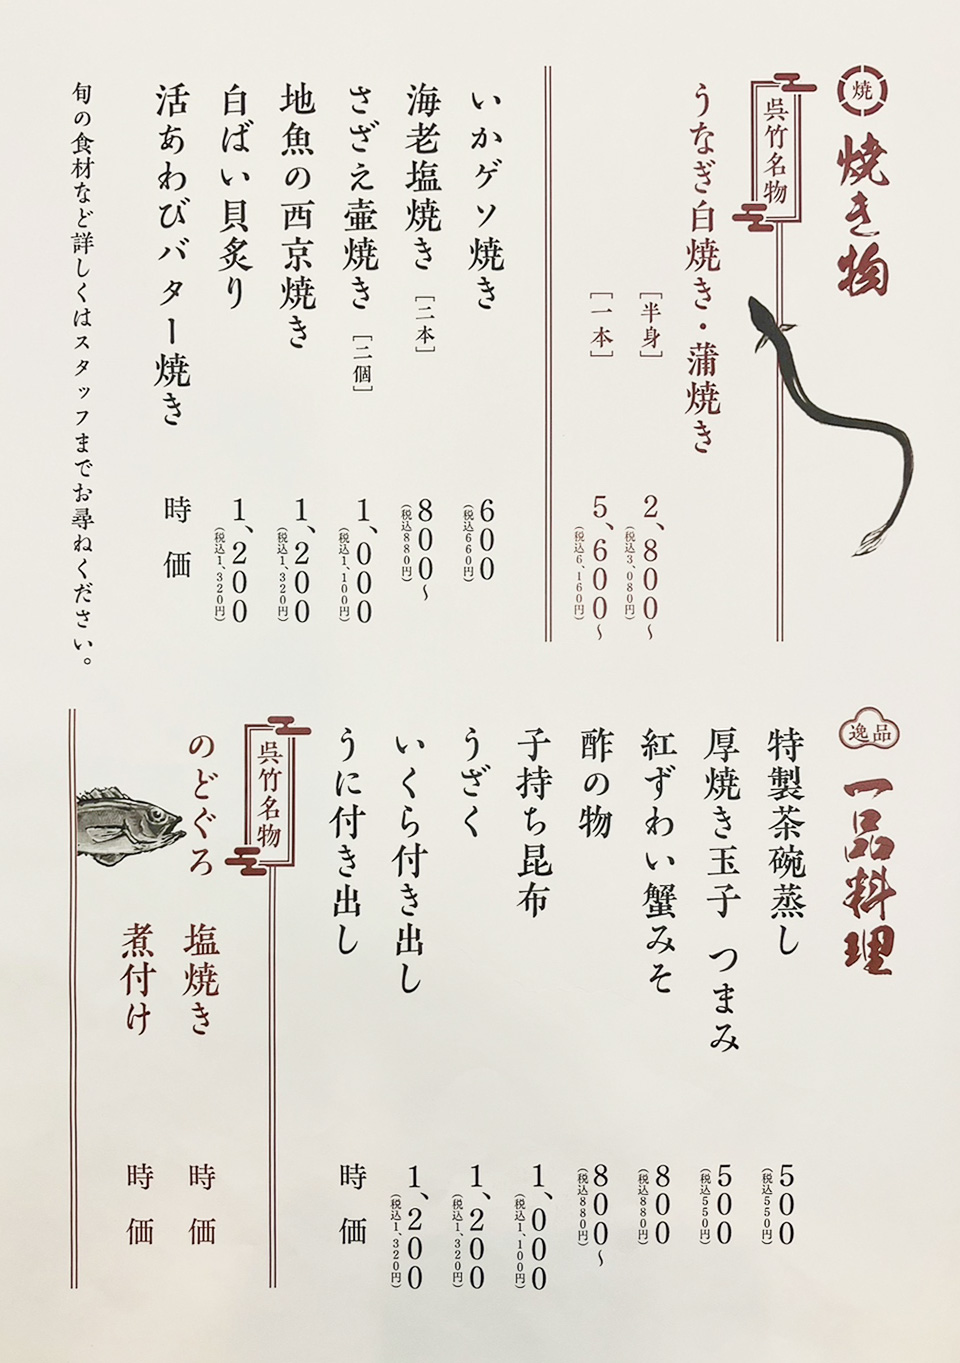 焼
焼き物
呉竹名物
うなぎ白焼き・蒲焼き
［半身］
2、800〜
（税込3、080円）
［一本］
5、600〜
（税込6、160円）
いかゲソ焼き
600
（税込660円）
海老塩焼き［二本］
800〜
（税込880円）
さざえ壷焼き［二個］
1、000
（税込1、100円）
地魚の西京焼き
1、200
（税込1、320円）
白ばい貝炙り
1、200
（税込1、320円）
活あわびバター焼き
時価
旬の食材など詳しくはスタッフまでお尋ねください。
逸品
一品料理
特製茶碗蒸し
500
（税込550円）
厚焼き玉子 つまみ
500
（税込550円）
紅ずわい蟹みそ
800
（税込880円）
酢の物
800〜
（税込880円）
子持ち昆布
1、000
（税込1、100円）
うざく
1、200
（税込1、320円）
いくら付き出し
1、200
（税込1、320円）
うに付き出し
時価
呉竹名物
のどぐろ 塩焼き
時価
煮付け
時価